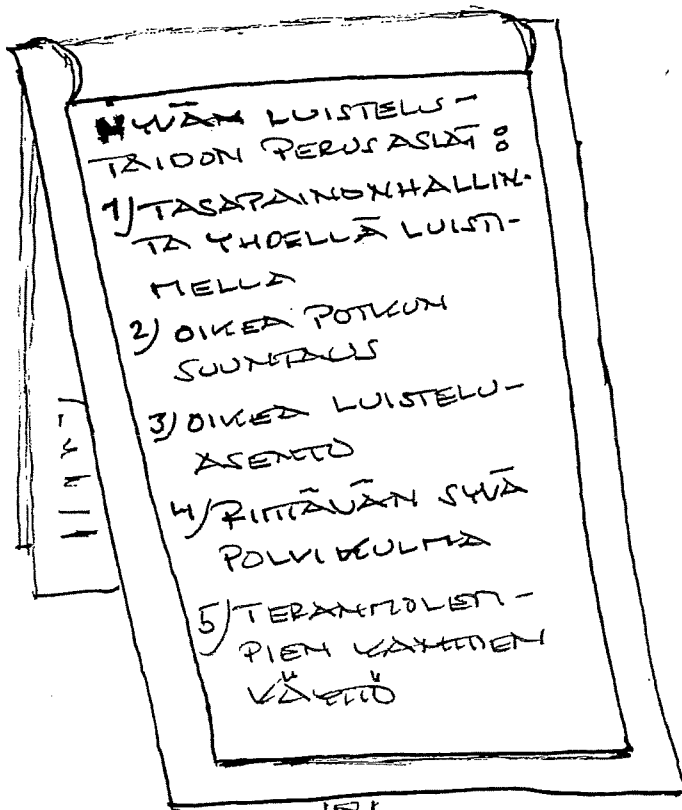 HYVÄN LUISTELU-
TAIDON PERUSASIAT:
1) TASAPAINONHALLIN-
TA YHDELLÄ LUISTI-
MELLA
2) OIKEA POTKUN
SUUNTAUS
3) OIKEA LUISTELU-
ASENTO
4) RIITTÄVÄN SYVÄ
POLVIKULMA
5) TERÄN MOLEM-
PIEN KANTTIEN
KÄYTTÖ